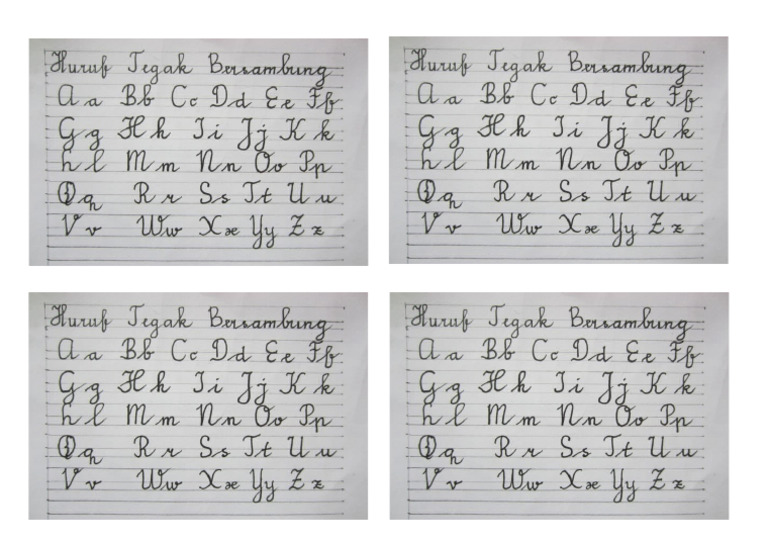 Huruf Tegak Bersambung
A a Bb Cc Dd Ee Ff
Gg Hh Ii Jj Kk
L l Mm Nn Oo Pp
Qq Rr Ss Tt Uu
Vv Ww Xx Yy Zz
Huruf Tegak Bersambung
A a Bb Cc Dd Ee Ff
Gg Hh Ii Jj Kk
L l Mm Nn Oo Pp
Qq Rr Ss Tt Uu
Vv Ww Xx Yy Zz
Huruf Tegak Bersambung
A a Bb Cc Dd Ee Ff
Gg Hh Ii Jj Kk
L l Mm Nn Oo Pp
Qq Rr Ss Tt Uu
Vv Ww Xx Yy Zz
Huruf Tegak Bersambung
A a Bb Cc Dd Ee Ff
Gg Hh Ii Jj Kk
L l Mm Nn Oo Pp
Qq Rr Ss Tt Uu
Vv Ww Xx Yy Zz